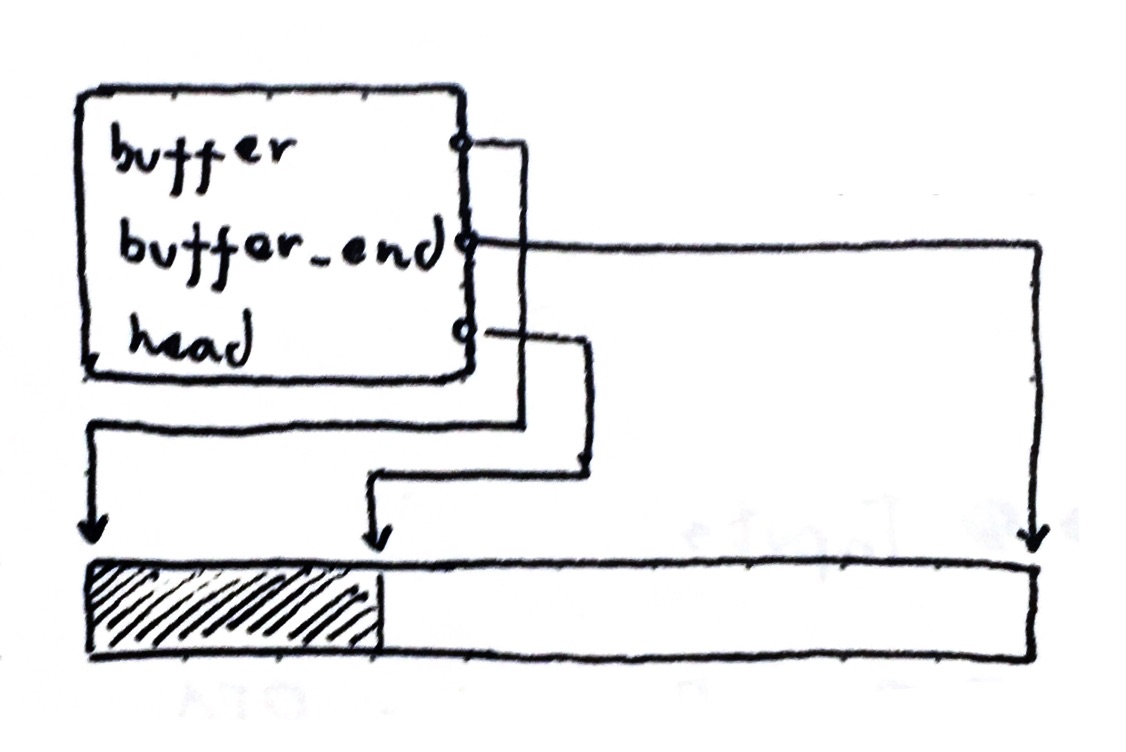 buffer
buffer_end
head